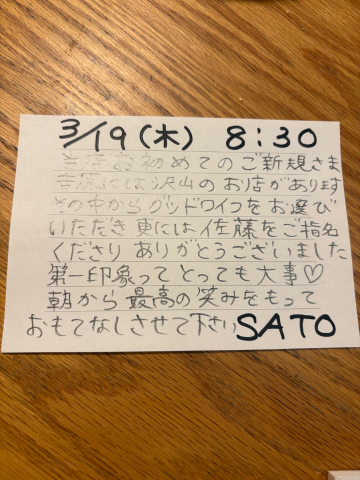 3/19(木) 8:30
当店お初めてのご新規さま
吉原には沢山のお店があります
その中からグッドワイフをお選び
いただき 更には佐藤をご指名
くださり ありがとうございました
第一印象って とっても大事♡
朝から最高の笑みをもって
おもてなしさせて下さい SATO